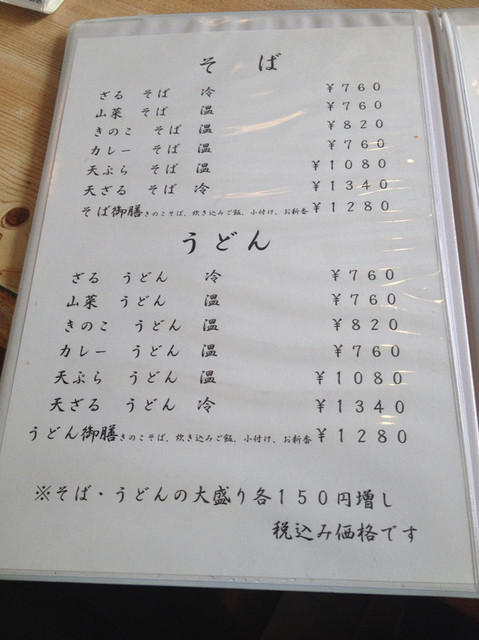 そば
ざる そば 冷 ¥760
山菜 そば 温 ¥760
きのこ そば 温 ¥820
カレー そば 温 ¥760
天ぷら そば 温 ¥1080
天ざる そば 冷 ¥1340
そば御膳 きのこそば、炊き込みご飯、小付け、お新香 ¥1280
うどん
ざる うどん 冷 ¥760
山菜 うどん 温 ¥760
きのこ うどん 温 ¥820
カレー うどん 温 ¥760
天ぷら うどん 温 ¥1080
天ざる うどん 冷 ¥1340
うどん御膳 きのこそば、炊き込みご飯、小付け、お新香 ¥1280
※そば・うどんの大盛り各150円増し
税込み価格です